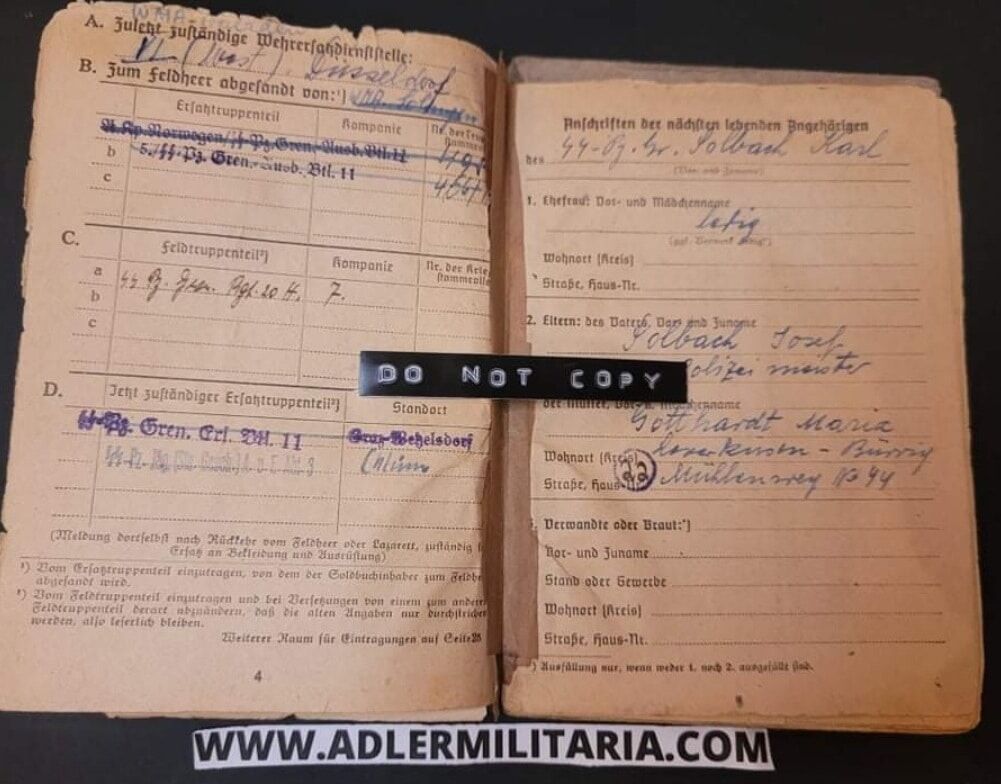 A. Zuletzt zuständige Wehrersatzdienststelle:
VI (West). Düsseldorf
B. Zum Feldheer abgesandt von:¹)
Ersatztruppenteil
Kompanie
Nr. der
A.Kp.Norwegen/SS-Pz.Gren.Ausb.Btl.11
b 5./SS-Pz. Gren.-Ausb. Btl. 11
c
C.
Feldtruppenteil²)
Kompanie
Nr. der
a SS Pz. Gren. Rgt. 20 H. 7.
b
c
D.
Jetzt zuständiger Ersatztruppenteil²)
Standort
SS-Pz. Gren. Ers. Btl. 11 Graz-Wetzelsdorf
(Meldung dortselbst nach Rückkehr vom Feldheer oder Lazarett, zuständig
Ersatz an Bekleidung und Ausrüstung)
¹) Vom Ersatztruppenteil einzutragen, von dem der Soldbuchinhaber zum Feldhe
abgesandt wird.
²) Vom Feldtruppenteil einzutragen und bei Versetzungen von einem zum andere
Feldtruppenteil derart abzuändern, daß die alten Angaben nur durchstriche
werden, also leserlich bleiben.
Weiterer Raum für Eintragungen auf Seite
4
Anschriften der nächsten lebenden Angehörigen
des SS-Pz. Gr. Solbach Karl
(Vor- und Zuname)
1. Ehefrau: Vor- und Mädchenname
ledig
(ggf. Vermerk „ledig")
Wohnort (Kreis)
Straße, Haus-Nr.
2. Eltern: des Vaters, Vor- und Zuname
Solbach Josef
Polizeimeister
der Mutter, Vor- u. Mädchenname
Gotthardt Maria
Wohnort (Kreis) Leverkusen - Bürrig
Straße, Haus-Nr. Mühlenweg No 94
3. Verwandte oder Braut:*)
Vor- und Zuname
Stand oder Gewerbe
Wohnort (Kreis)
Straße, Haus-Nr.
*) Ausfüllung nur, wenn weder 1. noch 2. ausgefüllt sind.
DO NOT COPY
WWW.ADLERMILITARIA.COM